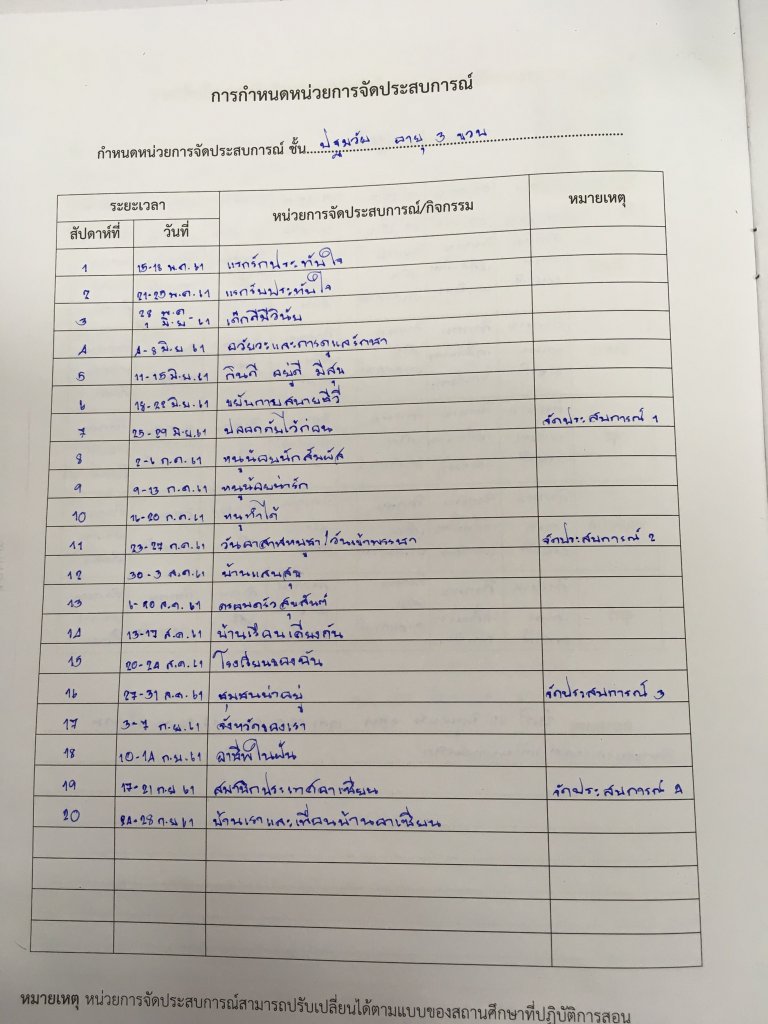 การกำหนดหน่วยการจัดประสบการณ์
กำหนดหน่วยการจัดประสบการณ์ ชั้น ปฐมวัย อายุ 3 ขวบ
ระยะเวลา หน่วยการจัดประสบการณ์/กิจกรรม หมายเหตุ
สัปดาห์ที่ วันที่
1 15-18 พ.ค. 61 แรกรักประทับใจ
2 21-25 พ.ค. 61 แรกรับประทับใจ
3 28 พ.ค - 1 มิ.ย. 61 เด็กดีมีวินัย
4 4-8 มิ.ย 61 อวัยวะและการดูแลรักษา
5 11-15 มิ.ย. 61 กินดี อยู่ดี มีสุข
6 18-22 มิ.ย 61 ขยับกายสบายชีวี
7 25-29 มิ.ย. 61 ปลอดภัยไว้ก่อน จัดประสบการณ์ 1
8 2-6 ก.ค. 61 หนูน้อยนักสัมผัส
9 9-13 ก.ค. 61 หนูน้อยน่ารัก
10 16-20 ก.ค. 61 หนูทำได้
11 23-27 ก.ค. 61 วันอาสาฬหบูชา/วันเข้าพรรษา จัดประสบการณ์ 2
12 30-3 ส.ค. 61 บ้านแสนสุข
13 6-10 ส.ค. 61 ครอบครัวสุขสันต์
14 13-17 ส.ค. 61 บ้านเรือนเคียงกัน
15 20-24 ส.ค. 61 โรงเรียนของฉัน
16 27-31 ส.ค. 61 ชุมชนน่าอยู่ จัดประสบการณ์ 3
17 3-7 ก.ย. 61 จังหวัดของเรา
18 10-14 ก.ย. 61 อาชีพในฝัน
19 17-21 ก.ย 61 สมาชิกประเทศอาเซียน จัดประสบการณ์ 4
20 24-28 ก.ย 61 บ้านเราและเพื่อนบ้านอาเซียน
หมายเหตุ หน่วยการจัดประสบการณ์สามารถปรับเปลี่ยนได้ตามแบบของสถานศึกษาที่ปฏิบัติการสอน